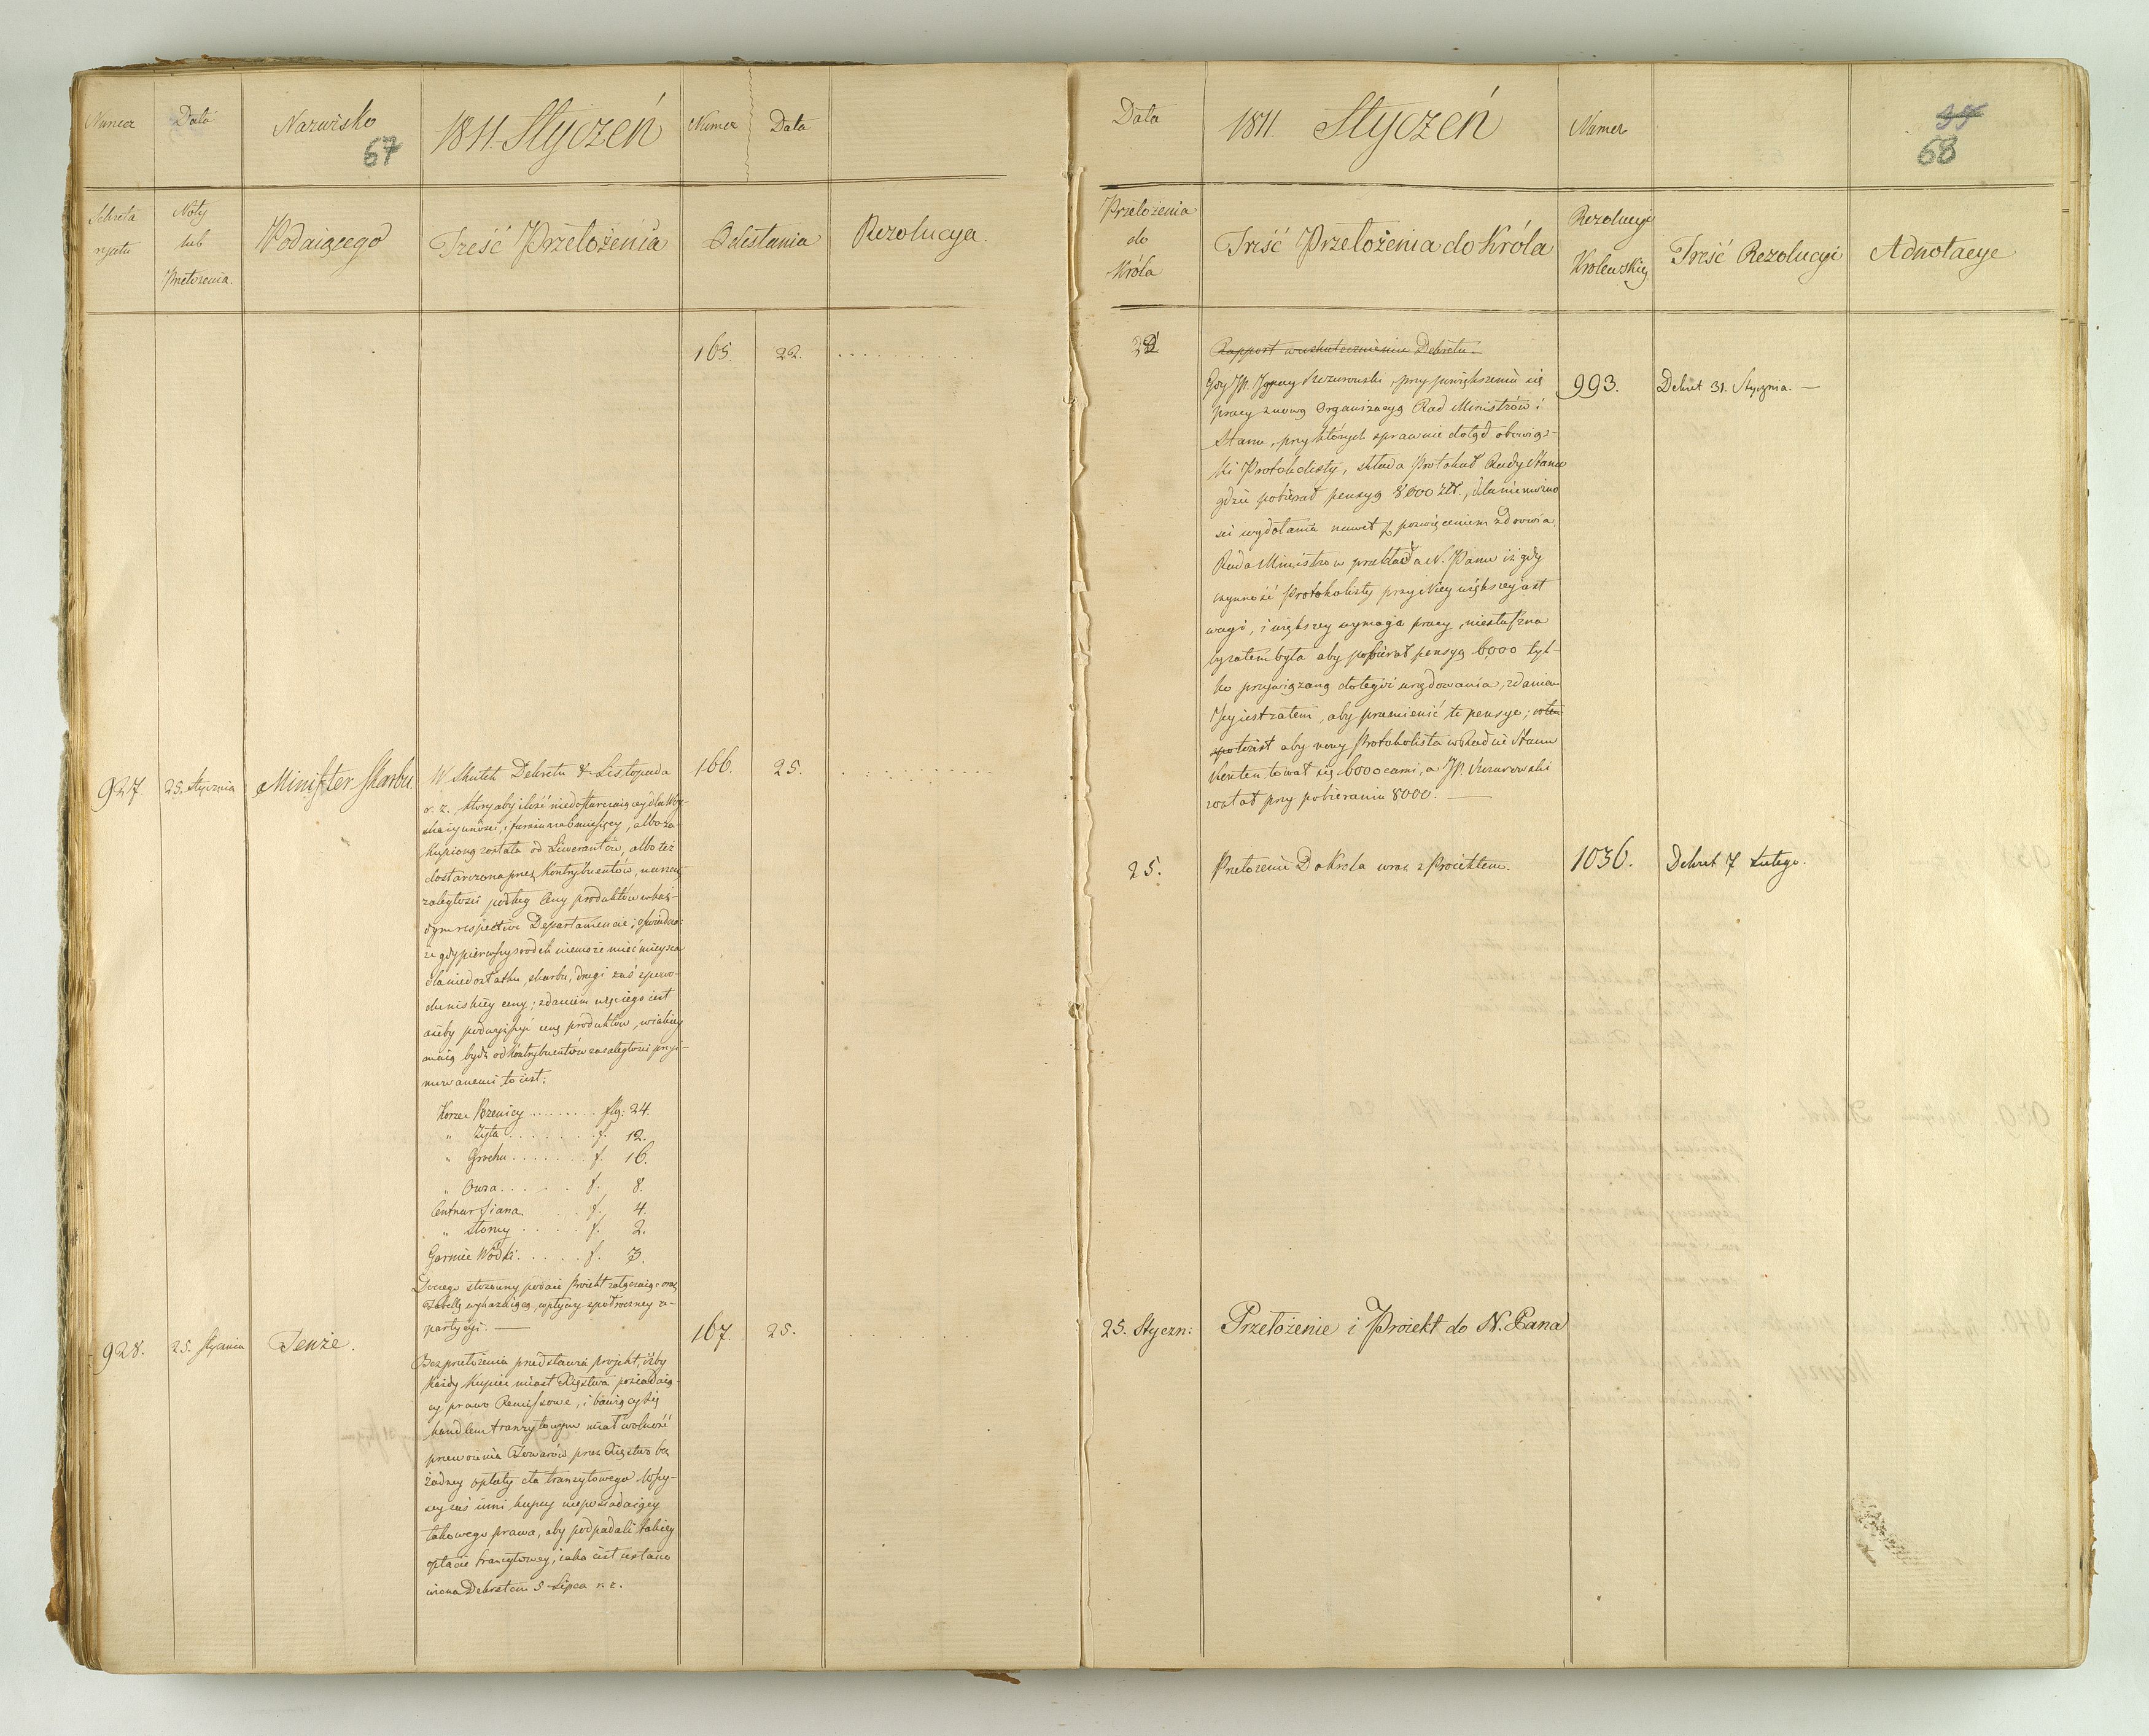 Numer Data Nazwisko 1811. Styczeń Numer Data
67
Sekreta Noty Podaiącego Treść Przełożenia Odesłania Rezolucya.
ryatu lub
Przełożenia.
165. 22. . . . . . . . . . .
927. 25. Stycznia Minister Skarbu. W Skutek Dekretu Listopada 166. 25. . . . . . . . . . .
r. z. który aby ilość niedostarczaiącey dla Woy-
ska żywności, i furażu na miesięcy, albo za-
kupioną została od Liwerantów, albo też
dostarczona przez Kontrybuentów,
zaległości podług Ceny produktów w każ-
dym respective Departamencie;
że gdy pierwszy srodek niemoże mieć mieysca
dla niedostatku skarbu, drugi zaś z powo-
du niskiey ceny; zdaniem więc iego iest
ażeby podwyższyć cenę produktów, w iakiey
maią bydź od Kontrybuentów za zaległości przyi-
mowanemi to iest:
Korzec Pszenicy . . . . . . . . flg: 24.
" Żyta . . . . . . . f. 12.
" Grochu . . . . . . . f. 16.
" Owsa . . . . . . f. 8.
Centnar Siana. . . . . f. 4.
" słomy . . . . . f. 2.
Garniec Wódki . . . . . f. 3.
Do czego stosowny podaie Proiekt załączaiąc oraz
Tabellę wykazuiącą wpływy z półroczney re-
partycyi. —
928. 25. Stycznia Tenże. 167. 25. . . . . . . . .
Bez przełożenia przedstawia projekt, iżby
każdy Kupiec miast Xięstwa posiadaią-
cy prawo Remissowe, i bawiący się
handlem tranzytowym miał wolność
przewożenia Towarów przez Xięstwo bez
żadney opłaty cła tranzytowego Wszy-
scy zaś inni kupcy nieposiadaiący
takowego prawa, aby podpadali takiey
opłacie tranzytowey, iaka iest ustano
wiona Dekretem 5 Lipca r. z.
Data 1811. Styczeń Numer 68
Przełożenia Treść Przełożenia do Króla Rezolucyi Treść Rezolucyi Adnotacye
do Królewskiey
Króla
22 Rapport w uskutecznieniu Dekretu.
Gdy JP. Ignacy przy powiększeniu się 993. Dekret 31. Stycznia. —
pracy z nową Organizacyą Rad Ministrów i
Stanu, przy których sprawuie dotąd obowiąz-
ki Protokolisty, składa Protokuł Rady Stanu
gdzie pobierał pensyą 8000 złł., dla niemożno
ści wydołania nawet z poswięceniem zdrowia.
Rada Ministrów przekłada N. Panu iż gdy
czynność Protokolisty przy Niey większey iest
wagi, i większey wymaga pracy, niesłuszna
by zatem była aby pobierał pensyą 6000 tyl-
ko przywiązaną do tegoż urzędowania, zdaniem
Jey iest zatem, aby przemienić te pensye;
aby nowy Protokolista w Radzie Stanu
kontentował się 6000cami, a JP.
został przy pobieraniu 8000. —
25. Przełożenie Do Króla wraz z Proiektem. 1036. Dekret 7 Lutego.
25. Styczn: Przełożenie i Proiekt do N. Pana